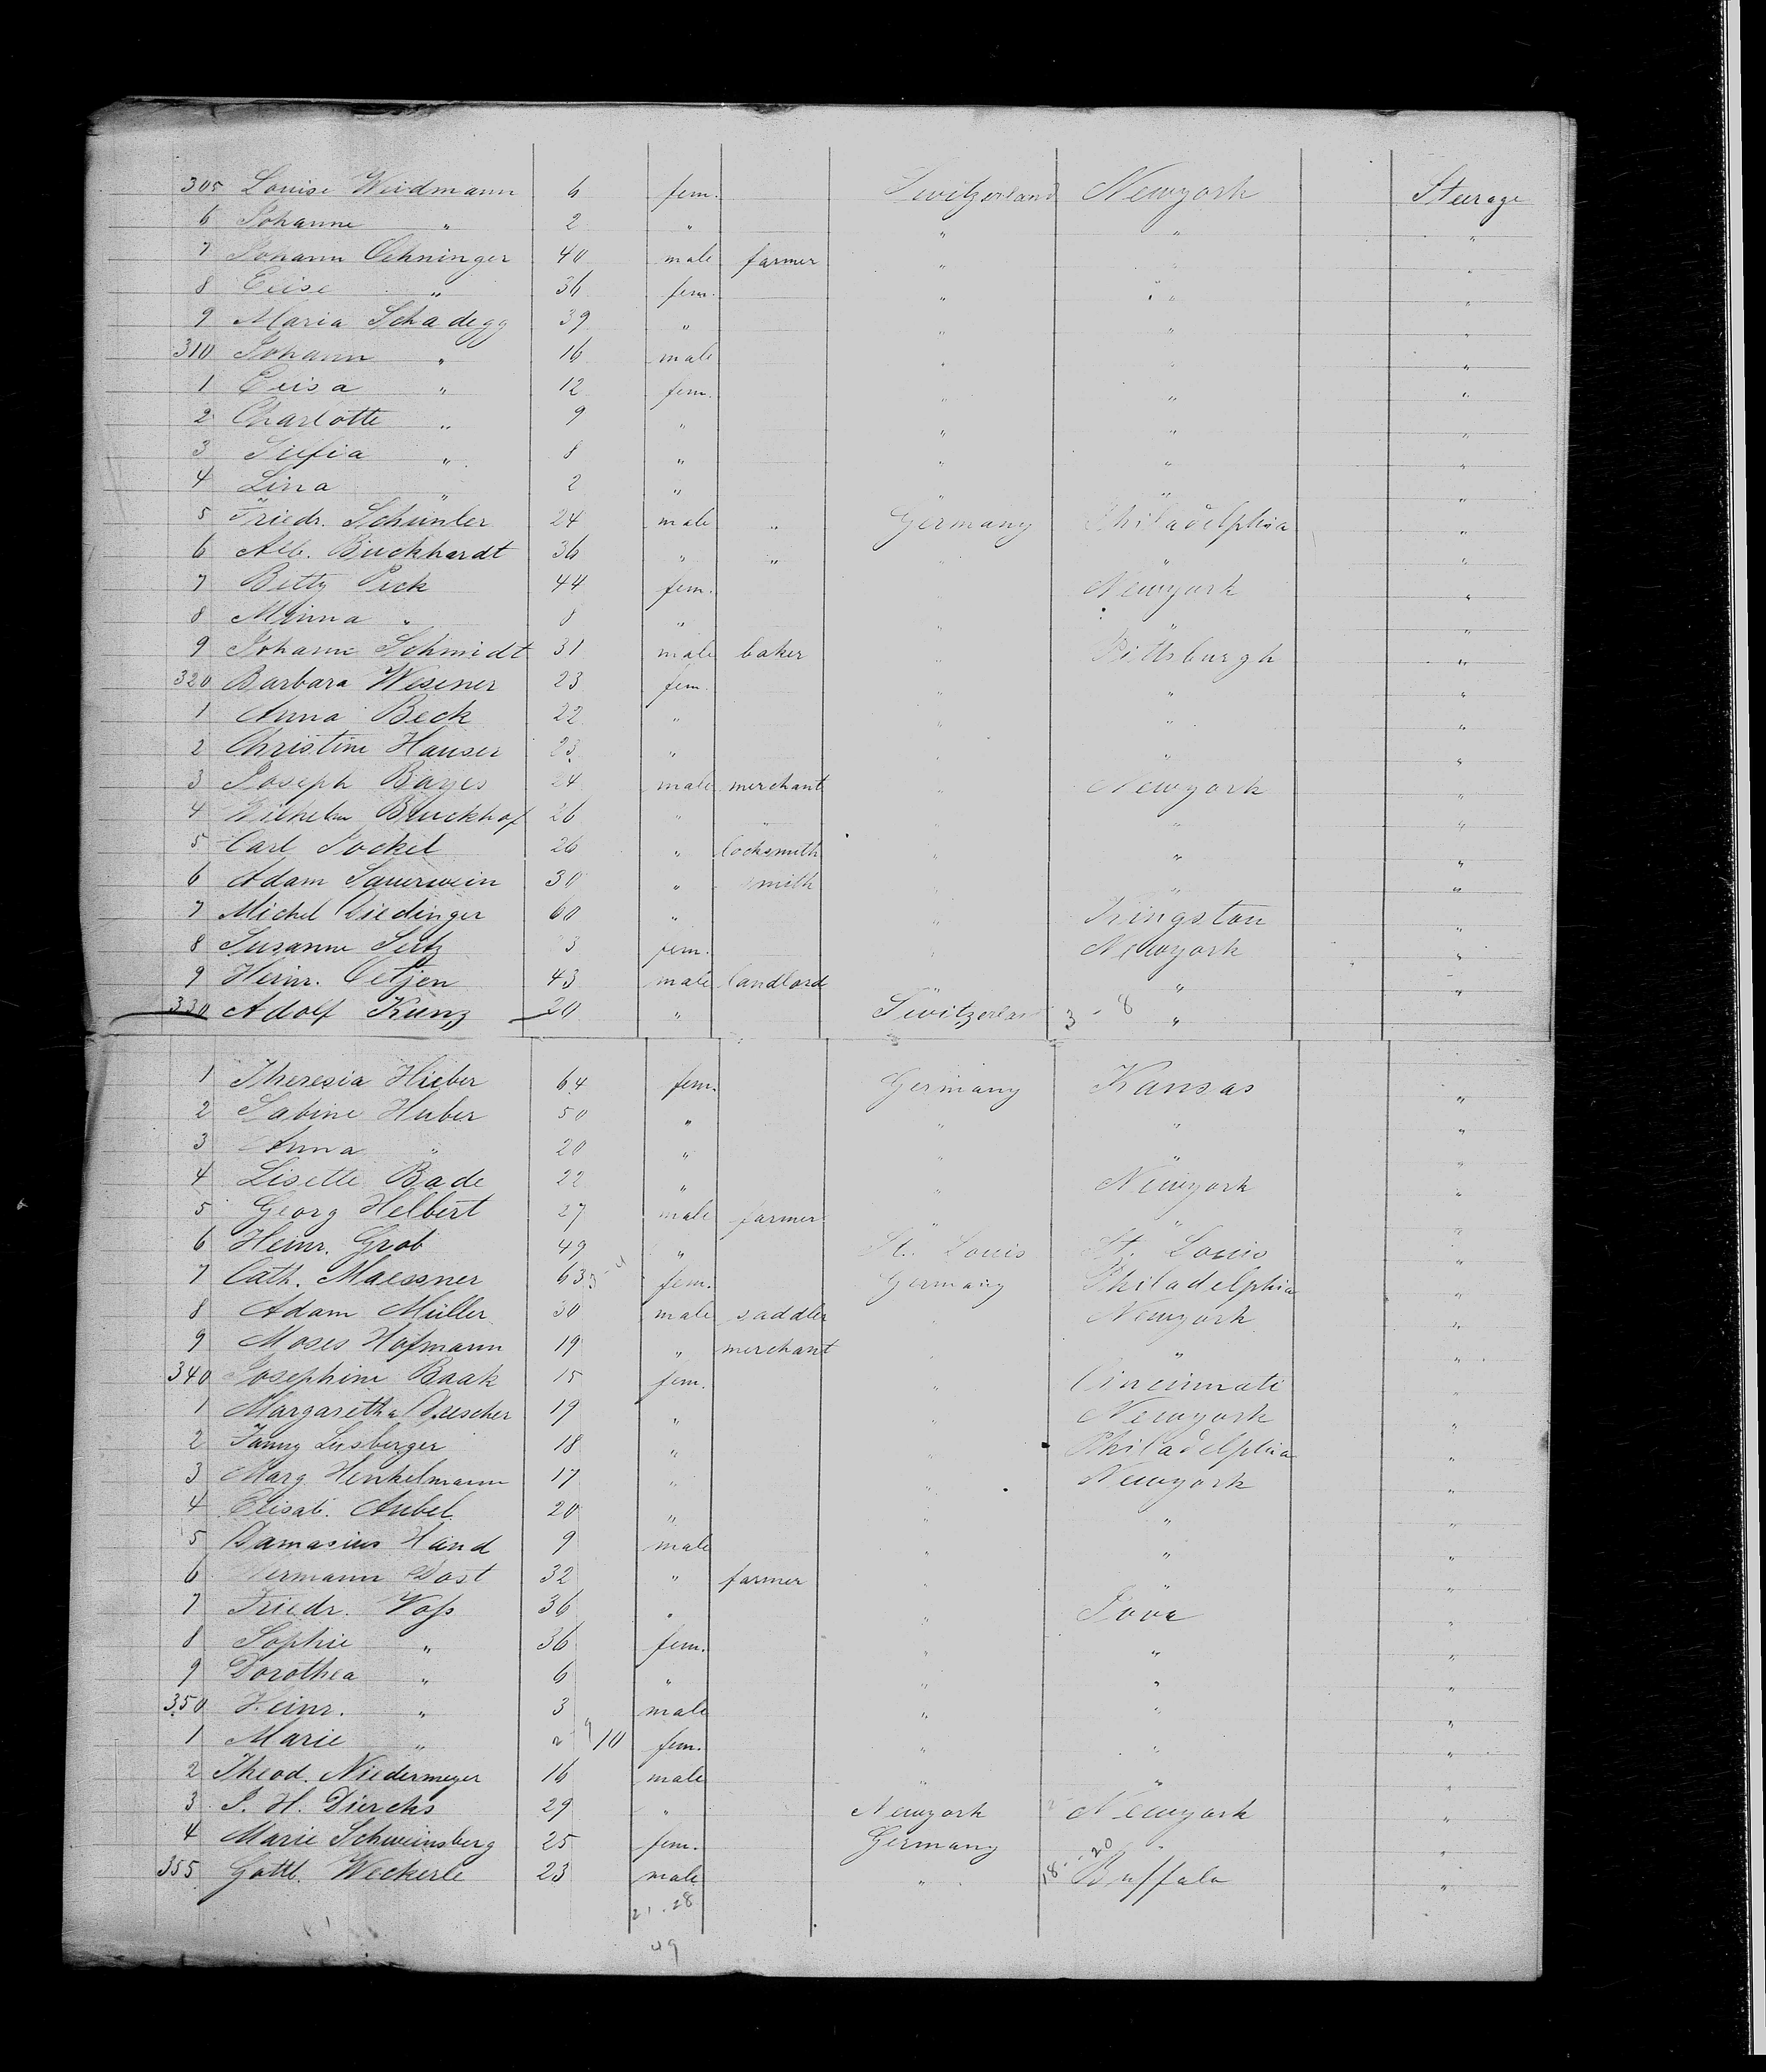 305 Louise Weidmann 6 fem. Switzerland Newyork Steerage
6 Johanne " 2 " " " "
7 Johann Oehninger 40 male farmer " " "
8 Elise " 36 fem. " " "
9 Maria Schadegg 39 " " " "
310 Johann " 16 male " " "
1 Elisa " 12 fem. " " "
2 Charlotte " 9 " " " "
3 Sufia " 8 " " " "
4 Lina " 2 " " " "
5 Friedr. Schünler 24 male " Germany Philadelphia "
6 Alb. Buckhardt 36 " " " " "
7 Betty Pick 44 fem. " Newyork "
8 Minna " 8 " " " "
9 Johann Schmidt 31 male baker " Pittsburgh "
320 Barbara Wesener 23 fem. " " "
1 Anna Beck 22 " " " "
2 Christine Hauser 23 " " " "
3 Joseph Bayes 24 male merchant " Newyork "
4 Wilhelm 26 " " " " "
5 Carl Jockel 26 " locksmith " " "
6 Adam Sauerwein 30 " smith " " "
7 Michel 60 " " Kingston "
8 Susanne Lutz 3 fem. " Newyork "
9 Heinr. Oetjen 43 male landlord " " "
330 Adolf Kunz 20 " Switzerlan 3 - 8 "
1 Theresia Hieber 64 fem. Germany Kansas "
2 Sabine Huber 50 " " " "
3 Anna " 20 " " " "
4 Lisette Bade 22 " " Newyork "
5 Georg Helbert 27 male farmer " " "
6 Heinr. Grob 49 " St. Louis St. Louis "
7 Cath. Maessner 63 fem. Germany Philadelphia "
8 Adam Müller 30 male saddler " Newyork "
9 Moses Hofmann 19 " merchant " " "
340 Josephine Baak 15 fem. " Cincinnati "
1 Margaretha Drescher 19 " " Newyork "
2 Fanny Lisberger 18 " " Philadelphia "
3 Marg Henkelmann 17 " " Newyork "
4 Elisab. Aubel 20 " " " "
5 Damasius Hand 9 male " " "
6 Hermann Dost 32 " farmer " " "
7 Friedr. Voss 36 " " Iova "
8 Sophie " 36 fem. " " "
9 Dorothea " 6 " " " "
350 Heinr. " 3 male " " "
1 Marie " 9/10 fem. " " "
2 Theod. Niedermeyer 16 male " " "
3 J. H. Diercks 29 " Newyork Newyork "
4 Marie Schweinsberg 25 fem. Germany " "
355 Gottl. Weckerle 23 male " 18 - 20 Buffalo "
21 . 28
49